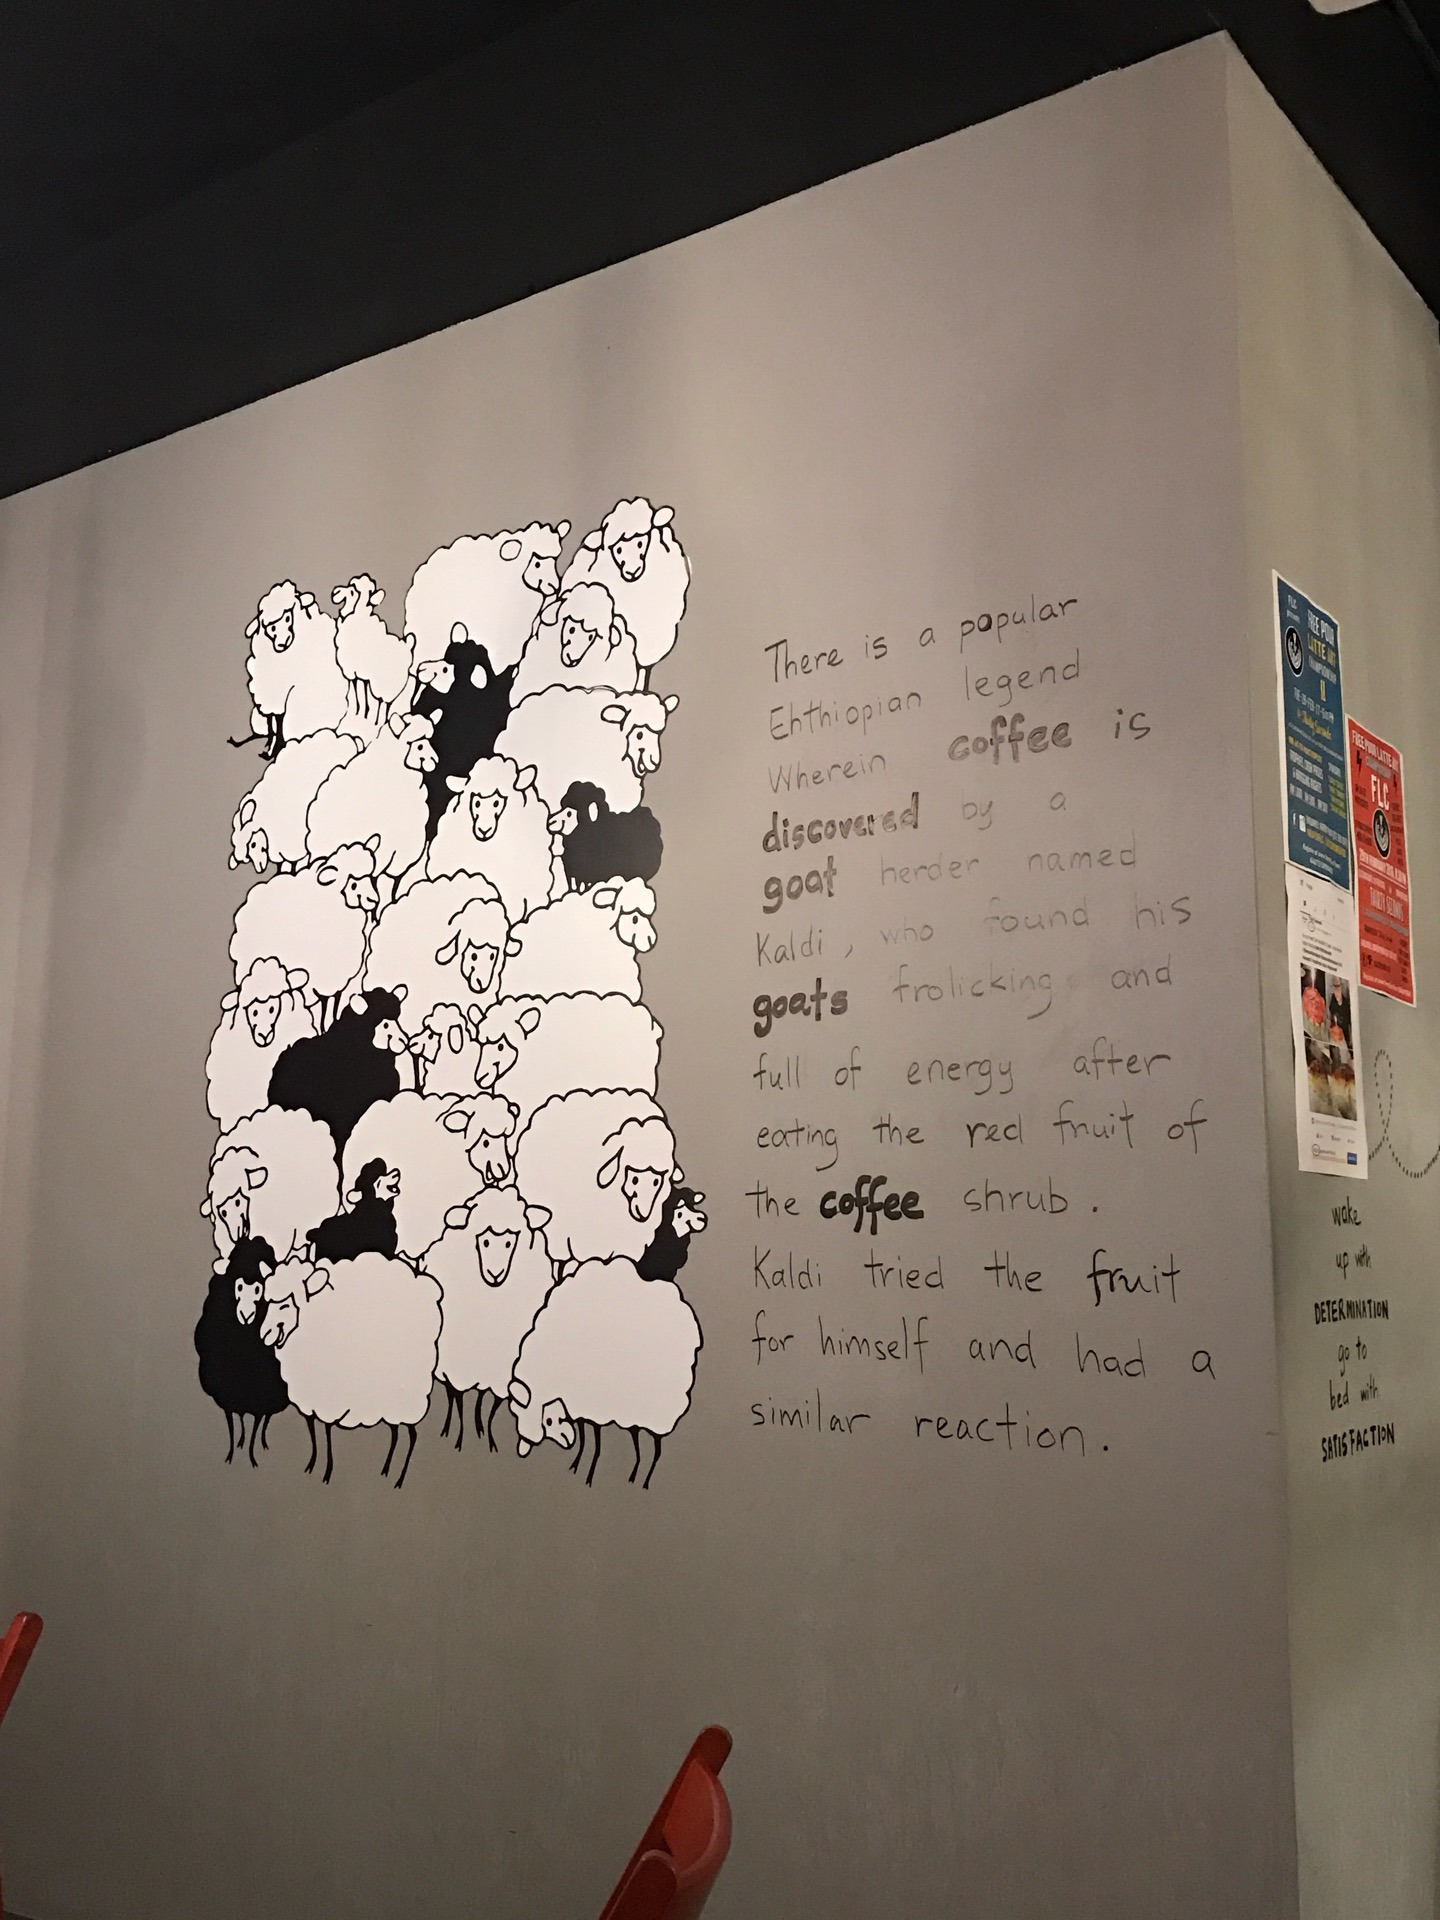 There is a popular
Ehthiopian legend
Wherein coffee is
discovered by a
goat herder named
Kaldi, who found his
goats frolicking and
full of energy after
eating the red fruit of
the coffee shrub.
Kaldi tried the fruit
for himself and had a
similar reaction.
FREE POUR
LATTE ART
CHAMPIONSHIP
FREE POUR LATTE ART
FLC
wake
up with
DETERMINATION
go to
bed with
SATISFACTION